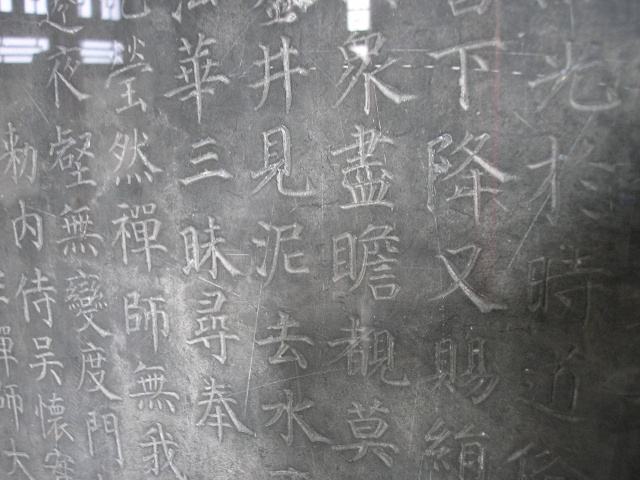 光於時道俗
下降又賜絹
眾盡瞻覩莫
井見泥去水
法華三昧尋奉
瑩然禪師無我
夜壑無變度門
勑內侍吳懷實
禪師大